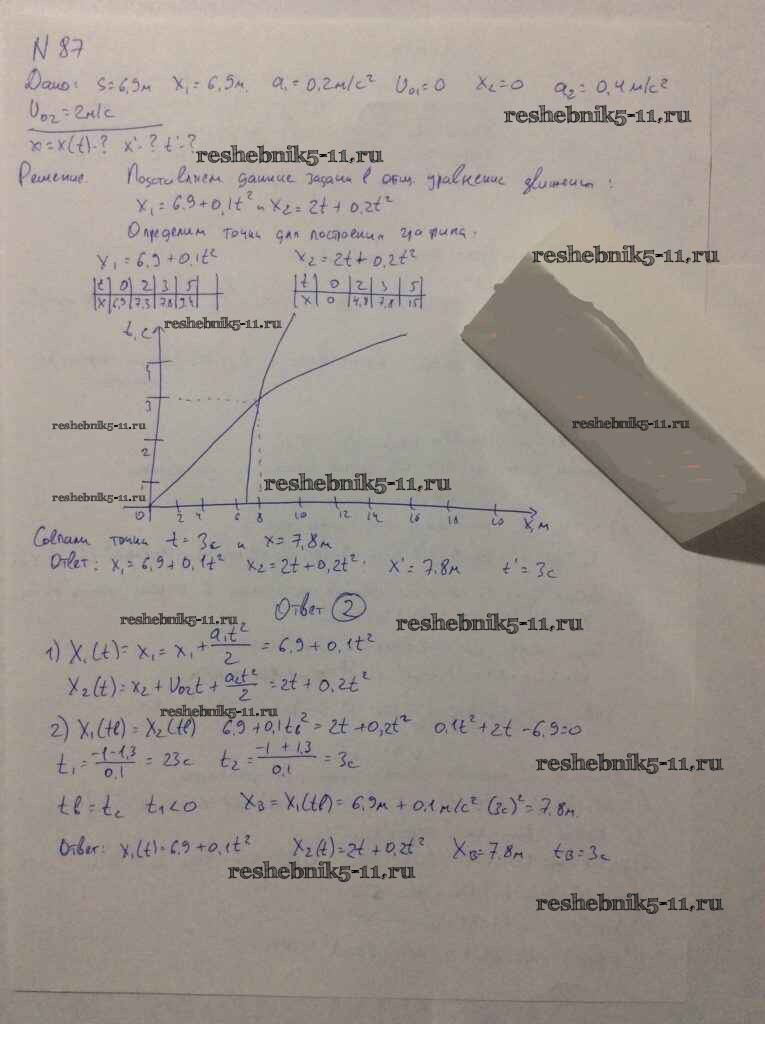 N 87
Дано: S=6,9м x₁=6,9м. a₁=0,2м/с² U₀₁=0 x₂=0 a₂=0,4м/с²
U₀₂=2м/с
reshebnik5-11.ru
x=x(t)-? x'-? t'-?
reshebnik5-11.ru
Решение. Подставляем данные задачи в общ. уравнение движения:
x₁=6.9+0,1t² и x₂=2t+0.2t²
Определим точки для построения графика.
x₁=6.9+0.1t² x₂=2t+0.2t²
reshebnik5-11.ru
t 0 2 3 5 t 0 2 3 5
x 6,9 7,3 7,8 9,4 x 0 4,8 7,8 15
reshebnik5-11.ru
t, c
5
3
reshebnik5-11.ru reshebnik5-11.ru
2
reshebnik5-11.ru
1 reshebnik5-11.ru
0 2 4 6 8 10 12 14 16 18 20 x, м
Совпали точки t=3с и x=7,8м
Ответ: x₁=6,9+0,1t² x₂=2t+0,2t²; x'=7.8м t'=3с
Ответ 2
reshebnik5-11.ru reshebnik5-11.ru
1) X₁(t)=x₁=x₁+a₁t²/2=6.9+0.1t²
X₂(t)=x₂+U₀₂t+a₂t²/2=2t+0.2t²
reshebnik5-11.ru
2) X₁(tв)=X₂(tв) 6.9+0.1tв²=2t+0,2t² 0.1t²+2t-6.9=0
t₁=-1-1,3/0.1=23с t₂=-1+1,3/0.1=3с
reshebnik5-11.ru
tв=t₂ t₁<0 Xв=X₁(tв)=6,9м+0.1м/с²(3с)²=7.8м.
Ответ: x₁(t)=6.9+0,1t² X₂(t)=2t+0,2t² Xв=7.8м tв=3с
reshebnik5-11.ru
reshebnik5-11.ru